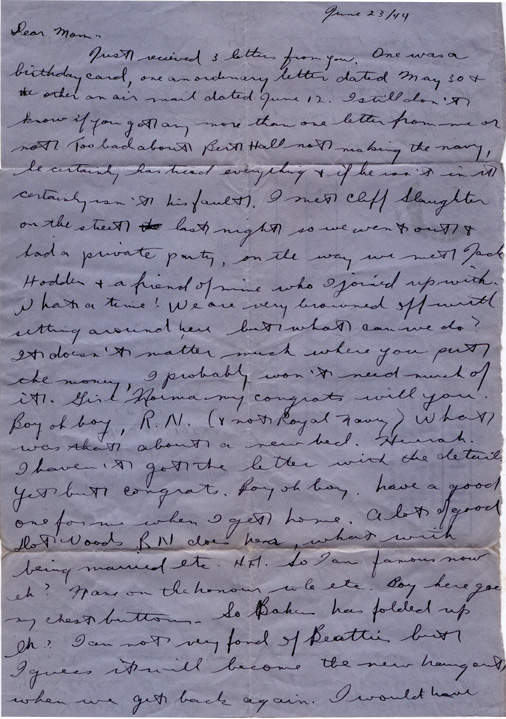 June 23/44
Dear Mom:-
Just received 3 letters from you. One was a
birthday card, one an ordinary letter dated May 30 &
the other an air mail dated June 12. I still don't
know if you got any more than one letter from me or
not. Too bad about Hall not making the navy,
he certainly has tried everything & if he isn't in it
certainly isn't his fault. I met Cliff Slaughter
on the street last night so we went out &
had a private party, on the way we met Jack
Hodder & a friend of mine who I joined up with.
What a time! We are very browned off with
sitting around here but what can we do?
It doesn't matter much where you put
the money, I probably won't need much of
it. Give Norma my congrats will you.
Boy oh boy, R.N. (& not Royal Navy) What
was that about a new bed. Hurrah.
I haven't got the letter with the details
yet but congrats. Boy oh boy. have a good
one for me when I get home. A lot of good
Woods R.N. does here, what with
being married etc. HA. So I am famous now
eh? Name on the honour role etc. Boy here goes
my chest buttons. So Baker has folded up
Eh? I am not very fond of Beatties but
I guess it will become the new hangout
when we get back again. I would have